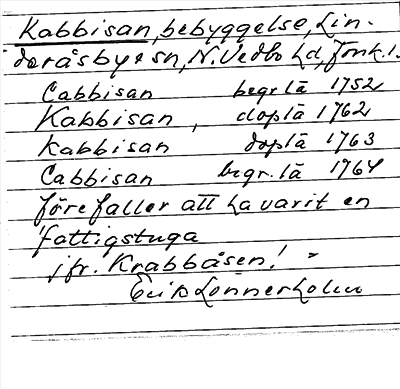 Kabbisan, bebyggelse, Lin-
deråsbyn sn, N. Vedbo hd, Jönk. l.
Cabbisan begr lä 1752
Kabbisan, doplä 1762
Kabbisan doplä 1763
Cabbisan begr. lä 1764
förefaller att ha varit en
fattigstuga
jfr. Krabbåsen! "
Erik Lönnerholm